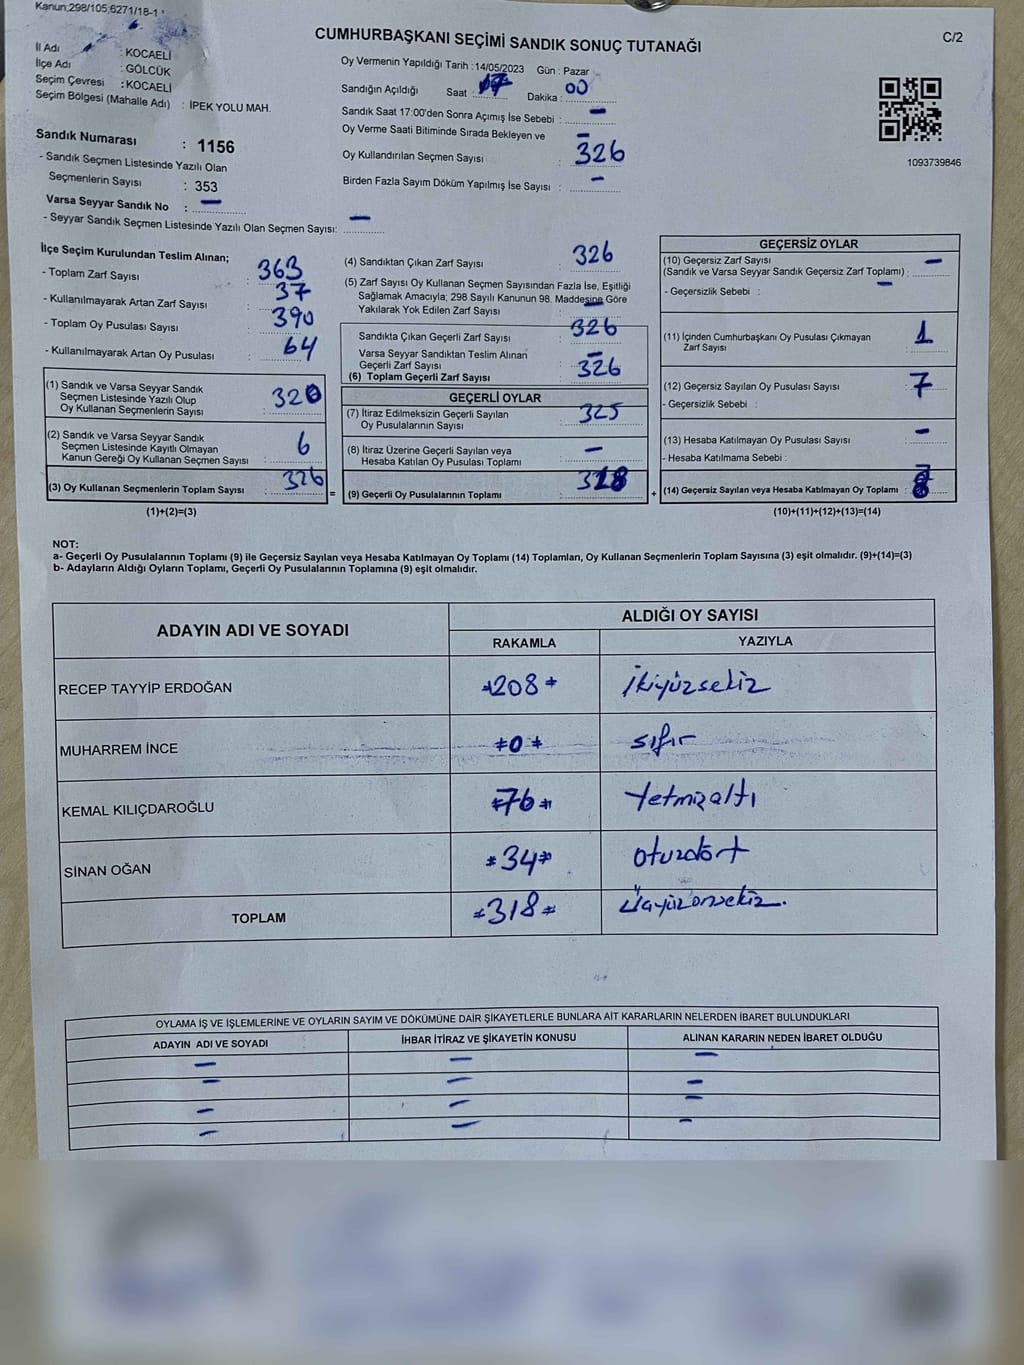 Kanun;298/105,6271/18-1
C/2
CUMHURBAŞKANI SEÇİMİ SANDIK SONUÇ TUTANAĞI
İl Adı : KOCAELİ
İlçe Adı : GÖLCÜK
Seçim Çevresi : KOCAELİ
Seçim Bölgesi (Mahalle Adı) : İPEK YOLU MAH.
Sandık Numarası : 1156
- Sandık Seçmen Listesinde Yazılı Olan
Seçmenlerin Sayısı : 353
Varsa Seyyar Sandık No : -
- Seyyar Sandık Seçmen Listesinde Yazılı Olan Seçmen Sayısı: -
Oy Vermenin Yapıldığı Tarih : 14/05/2023 Gün : Pazar
Sandığın Açıldığı Saat : 17 Dakika : 00
Sandık Saat 17:00'den Sonra Açımış İse Sebebi : -
Oy Verme Saati Bitiminde Sırada Bekleyen ve -
Oy Kullandırılan Seçmen Sayısı : 326
Birden Fazla Sayım Döküm Yapılmış İse Sayısı : -
1093739846
İlçe Seçim Kurulundan Teslim Alınan;
- Toplam Zarf Sayısı : 363
- Kullanılmayarak Artan Zarf Sayısı : 37
- Toplam Oy Pusulası Sayısı : 390
- Kullanılmayarak Artan Oy Pusulası : 64
(1) Sandık ve Varsa Seyyar Sandık
Seçmen Listesinde Yazılı Olup
Oy Kullanan Seçmenlerin Sayısı : 320
(2) Sandık ve Varsa Seyyar Sandık
Seçmen Listesinde Kayıtlı Olmayan
Kanun Gereği Oy Kullanan Seçmen Sayısı : 6
(3) Oy Kullanan Seçmenlerin Toplam Sayısı : 326
(1)+(2)=(3)
=
(4) Sandıktan Çıkan Zarf Sayısı : 326
(5) Zarf Sayısı Oy Kullanan Seçmen Sayısından Fazla İse, Eşitliği
Sağlamak Amacıyla; 298 Sayılı Kanunun 98. Maddesine Göre
Yakılarak Yok Edilen Zarf Sayısı : -
Sandıkta Çıkan Geçerli Zarf Sayısı : 326
Varsa Seyyar Sandıktan Teslim Alınan
Geçerli Zarf Sayısı : -
(6) Toplam Geçerli Zarf Sayısı : 326
GEÇERLİ OYLAR
(7) İtiraz Edilmeksizin Geçerli Sayılan
Oy Pusulalarının Sayısı : 325
(8) İtiraz Üzerine Geçerli Sayılan veya
Hesaba Katılan Oy Pusulası Toplamı : -
(9) Geçerli Oy Pusulalarının Toplamı : 318
+
GEÇERSİZ OYLAR
(10) Geçersiz Zarf Sayısı
(Sandık ve Varsa Seyyar Sandık Geçersiz Zarf Toplamı) : -
- Geçersizlik Sebebi : -
(11) İçinden Cumhurbaşkanı Oy Pusulası Çıkmayan
Zarf Sayısı : 1
(12) Geçersiz Sayılan Oy Pusulası Sayısı : 7
- Geçersizlik Sebebi :
(13) Hesaba Katılmayan Oy Pusulası Sayısı : -
- Hesaba Katılmama Sebebi :
(14) Geçersiz Sayılan veya Hesaba Katılmayan Oy Toplamı : 8
(10)+(11)+(12)+(13)=(14)
NOT:
a- Geçerli Oy Pusulalarının Toplamı (9) ile Geçersiz Sayılan veya Hesaba Katılmayan Oy Toplamı (14) Toplamları, Oy Kullanan Seçmenlerin Toplam Sayısına (3) eşit olmalıdır. (9)+(14)=(3)
b- Adayların Aldığı Oyların Toplamı, Geçerli Oy Pusulalarının Toplamına (9) eşit olmalıdır.
ADAYIN ADI VE SOYADI
ALDIĞI OY SAYISI
RAKAMLA YAZIYLA
RECEP TAYYİP ERDOĞAN 208 ikiyüzsekiz
MUHARREM İNCE 0 sıfır
KEMAL KILIÇDAROĞLU 76 Yetmişaltı
SİNAN OĞAN 34 otuzdört
TOPLAM 318 Üçyüzonsekiz.
OYLAMA İŞ VE İŞLEMLERİNE VE OYLARIN SAYIM VE DÖKÜMÜNE DAİR ŞİKAYETLERLE BUNLARA AİT KARARLARIN NELERDEN İBARET BULUNDUKLARI
ADAYIN ADI VE SOYADI İHBAR İTİRAZ VE ŞİKAYETİN KONUSU ALINAN KARARIN NEDEN İBARET OLDUĞU
- - -
- - -
- - -
- - -